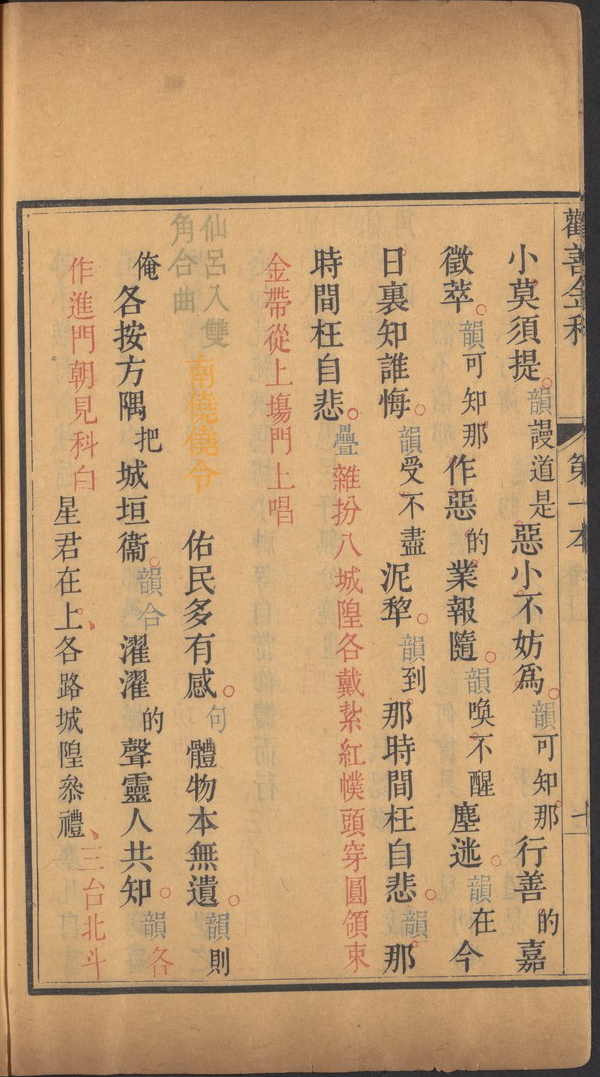 勸善金科
第一本
七
小莫須提韻謾道是惡小不妨為韻可知那行善的嘉
徵萃韻可知那作惡的業報隨韻喚不醒塵迷韻在今
日裏知誰悔韻受不盡泥犂韻到那時間枉自悲韻那
時間枉自悲疊雜扮八城隍各戴紮紅幞頭穿圓領束
金帶從上塲門上唱
仙呂入雙
角合曲
南僥僥令
佑民多有感句體物本無遺韻則
俺各按方隅把城垣衞韻合濯濯的聲靈人共知韻各
作進門朝見科白星君在上各路城隍叅禮三台北斗